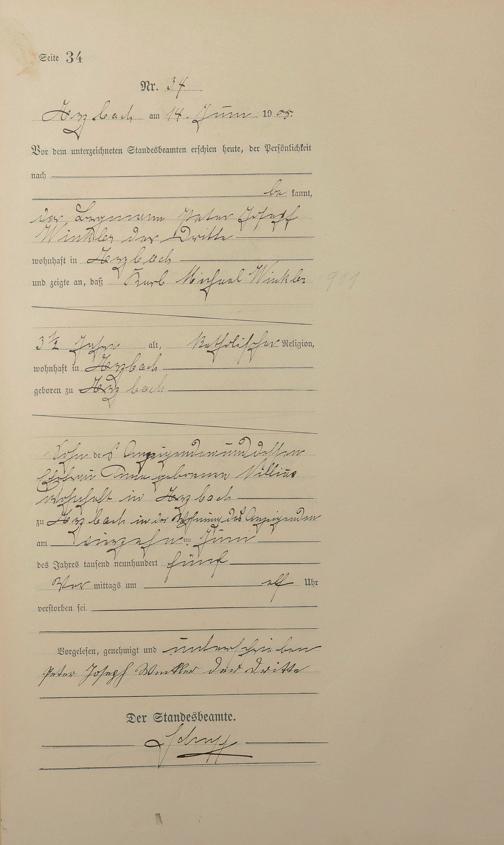 Seite 34
Nr. 34
am 14. Juni 1905.
Vor dem unterzeichneten Standesbeamten erschien heute, der Persönlichkeit
nach
be kannt,
der Bergmann Peter Josef
Winkler der Dritte
wohnhaft in
und zeigte an, daß Karl Michael Winkler
3½ Jahre alt, katholischer Religion,
wohnhaft in
geboren zu
Sohn des Anzeigenden und dessen
Ehefrau geborenen
wohnhaft in
zu in der Wohnung des Anzeigenden
am ten Juni
des Jahres tausend neunhundert fünf
Vor mittags um elf Uhr
verstorben sei.
Vorgelesen, genehmigt und unterschrieben
Peter Joseph Winkler der dritte
Der Standesbeamte.